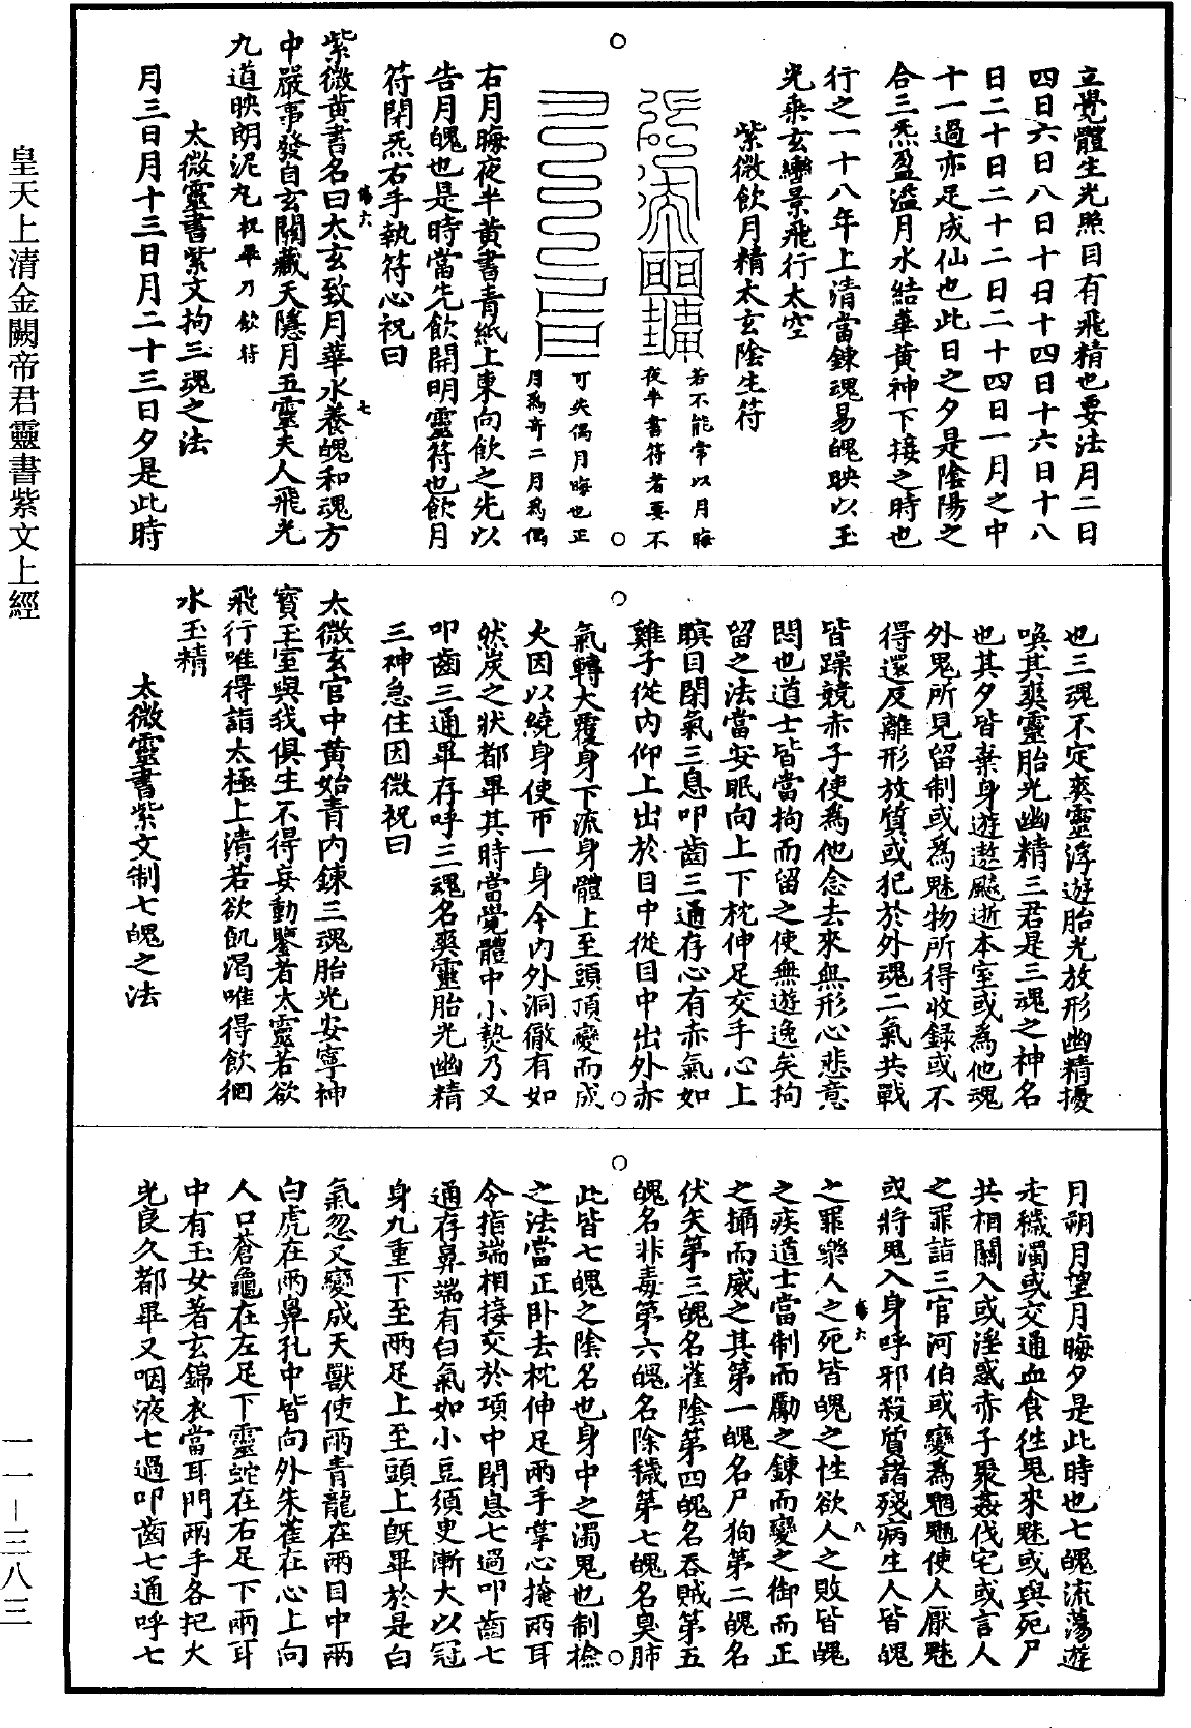 立覺體生光照目有飛精也要法月二日
四日六日八日十日十四日十六日十八
日二十日二十二日二十四日一月之中
十一過亦足成仙也此日之夕是陰陽之
合三炁盈溢月水結華黃神下接之時也
行之一十八年上清當鍊魂易魄映以玉
光乘玄轡景飛行太空
紫微飲月精太玄陰生符
若不能常以月晦
夜半書符者要不
可失偶月晦也正
月為奇二月為偶
右月晦夜半黃書青紙上東向飲之先以
告月魄也是時當先飲開明靈符也飲月
符閉炁右手執符心祝曰
紫微黃書名曰太玄致月華水養魄和魂方
中嚴事發自玄關藏天隱月五靈夫人飛光
九道映朗泥丸祝畢乃飲符
太微靈書紫文拘三魂之法
月三日月十三日月二十三日夕是此時
也三魂不定爽靈浮遊胎光放形幽精擾
喚其爽靈胎光幽精三君是三魂之神名
也其夕皆棄身遊遨飈逝本室或為他魂
外鬼所見留制或為魅物所得收錄或不
得還反離形放質或犯於外魂二氣共戰
皆躁競赤子使為他念去來無形心悲意
悶也道士皆當拘而留之使無遊逸矣拘
留之法當安眠向上下枕伸足交手心上
瞑目閉氣三息叩齒三通存心有赤氣如
雞子從內仰上出於目中從目中出外赤
氣轉大覆身下流身體上至頭頂變而成
火因以繞身使帀一身令內外洞徹有如
然炭之狀都畢其時當覺體中小熱乃又
叩齒三通畢存呼三魂名爽靈胎光幽精
三神急住因微祝曰
太微玄官中黃始青內鍊三魂胎光安寧神
寶玉室與我俱生不得妄動鑒者太靈若欲
飛行唯得詣太極上清若欲飢渴唯得飲徊
水玉精
太微靈書紫文制七魄之法
月朔月望月晦夕是此時也七魄流蕩遊
走穢濁或交通血食往鬼來魅或與死尸
共相關入或淫惑赤子聚姦伐宅或言人
之罪詣三官河伯或變為魍魎使人厭魅
或將鬼入身呼邪殺質諸殘病生人皆魄
之罪樂人之死皆魄之性欲人之敗皆魄
之疾道士當制而厲之鍊而變之御而正
之攝而威之其第一魄名尸狗第二魄名
伏矢第三魄名雀陰第四魄名吞賊第五
魄名非毒第六魄名除穢第七魄名臭肺
此皆七魄之陰名也身中之濁鬼也制檢
之法當正卧去枕伸足兩手掌心掩兩耳
令指端相接交於項中閉息七過叩齒七
通存鼻端有白氣如小豆須臾漸大以冠
身九重下至兩足上至頭上既畢於是白
氣忽又變成天獸使兩青龍在兩目中兩
白虎在兩鼻孔中皆向外朱雀在心上向
人口蒼龜在左足下靈蛇在右足下兩耳
中有玉女著玄錦衣當耳門兩手各把火
光良久都畢又咽液七過叩齒七通呼七
皇天上清金闕帝君靈書紫文上經
一一—三八三